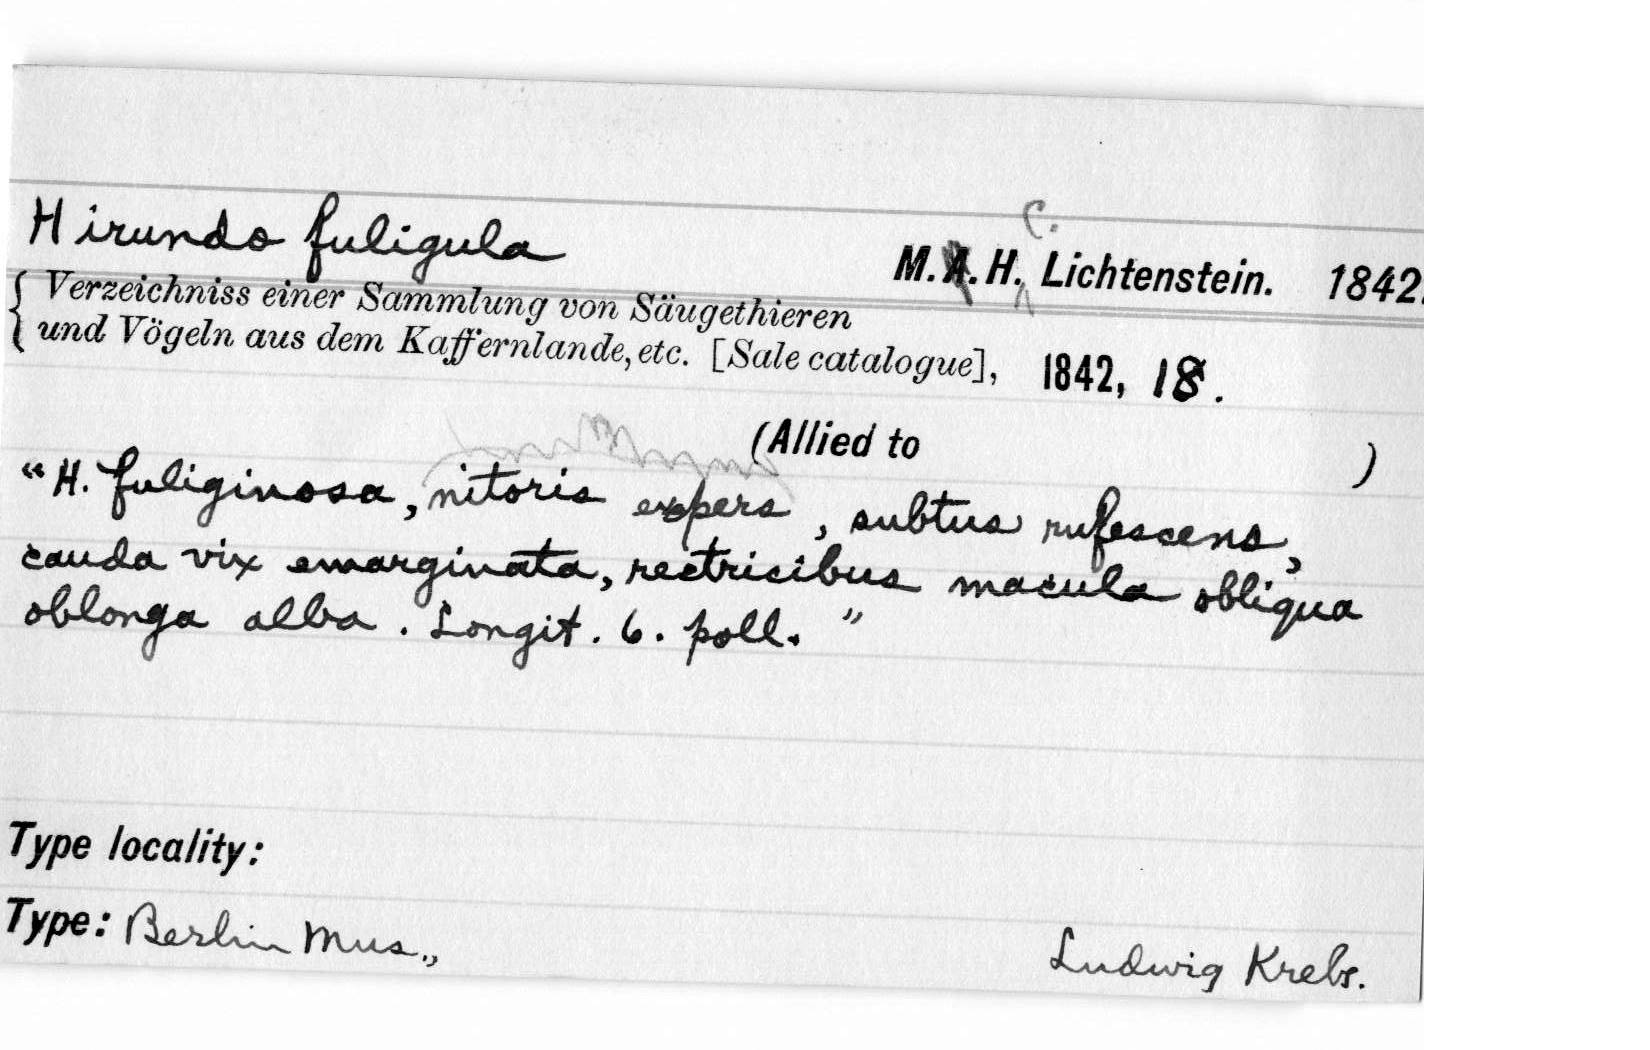 Hirundo fuligula
M. H. C. Lichtenstein. 1842.
Verzeichniss einer Sammlung von Säugethieren
und Vögeln aus dem Kaffernlande, etc. [Sale catalogue], 1842, 18.
(Allied to )
"H. fuliginosa, nitoris expers, subtus rufescens,
cauda vix emarginata, rectricibus macula obliqua
oblonga alba. Longit. 6. poll."
Type locality:
Type: Berlin Mus., Ludwig Krebs.